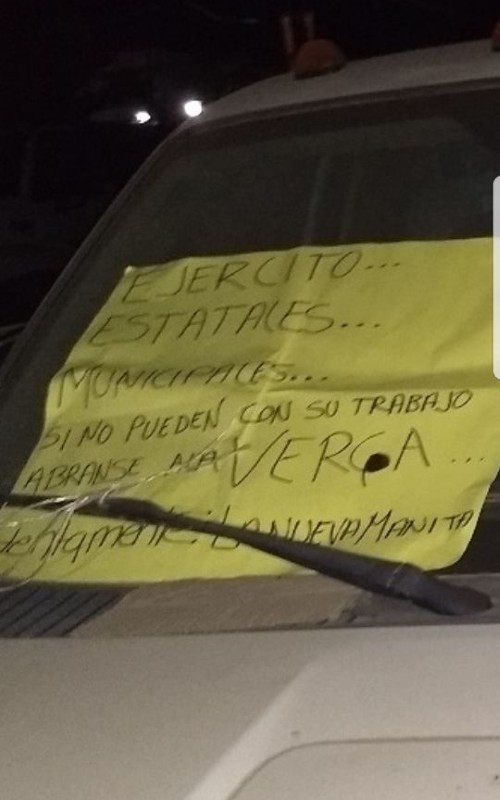 EJERCITO...
ESTATALES...
MUNICIPALES...
SI NO PUEDEN CON SU TRABAJO
ABRANSE A LA VERGA...
: LA NUEVA MANITA